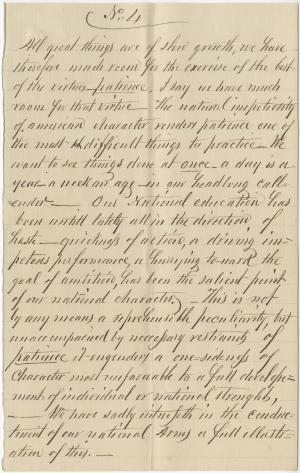 No. 4
All great things are of slow growth, we have
therefore much room for the exercise of the best
of the virtues patience, I say we have much
room for that virtue — The natural impetuosity
of american character renders patience one of
the most difficult things to practice — We
want to see things done at once — a day is a
year a week an age — in our headlong call-
ender — Our National education has
been untill lately all in the direction of
haste — quickings of action, a driving im-
petous performance, a hurrying toward the
goal of ambition has been the salient point
of our national character — This is not
by any means a reprehensible peculiarity but
unaccompanied by necessary restraints of
patience it engenders a one-sidedness of
character most unfavorable to a full develope-
ment of individual or national strengths,
— We have sadly in the conduc-
tment of our national Arms a full illustr-
ation of this. —